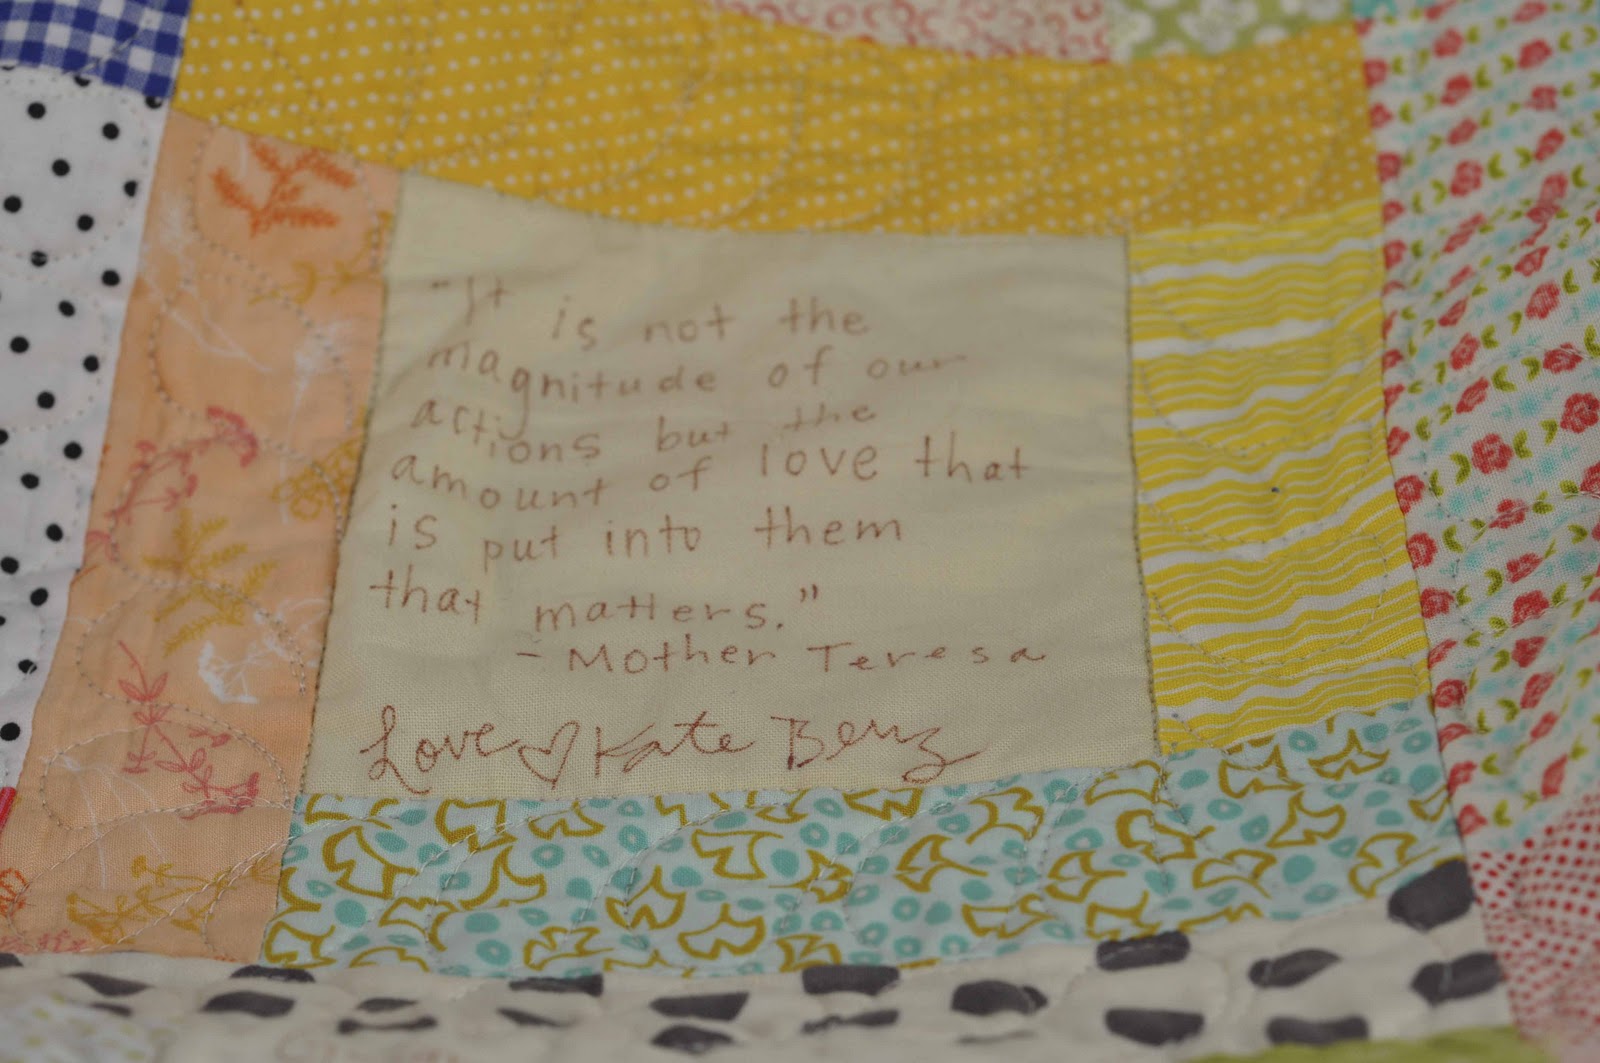 "It is not the
magnitude of our
actions but the
amount of love that
is put into them
that matters."
- Mother Teresa
Love ♡ Kate Benz